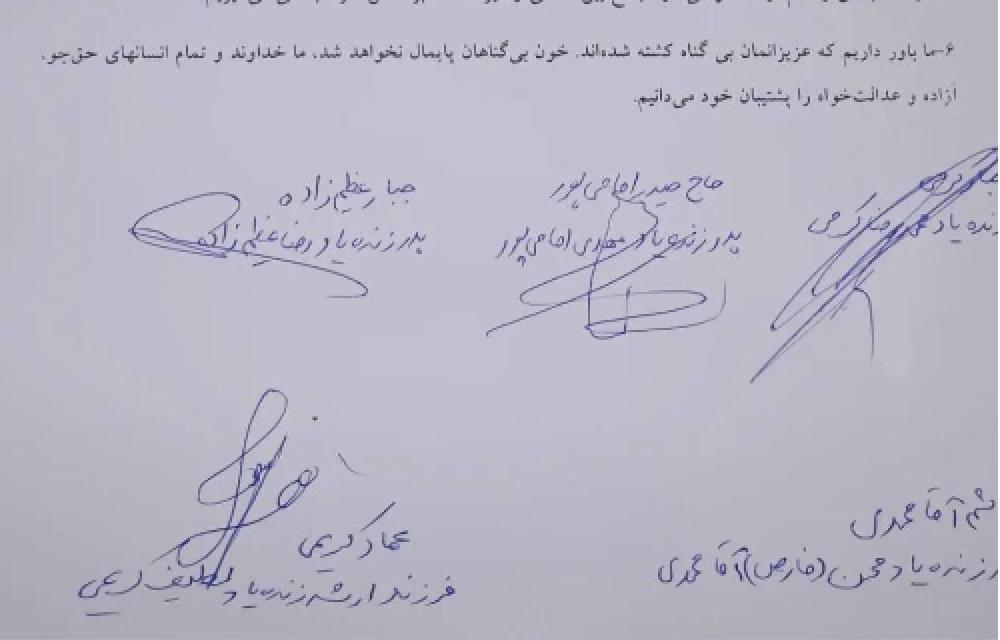 ۶-ما باور داریم که عزیزانمان بی گناه کشته شده‌اند. خون بی‌گناهان پایمال نخواهد شد، ما خداوند و تمام انسانهای حق‌جو،
آزاده و عدالت‌خواه را پشتیبان خود می‌دانیم.
حاج حیدر امامی پور
پدر زنده یاد مهدی امامی پور
جبار عظیم زاده
پدر زنده یاد رضا عظیم زاده
زنده یاد کرمی
آقا محمدی
زنده یاد محسن (فارص) آقا محمدی
عماد کریمی
فرزند ارشد زنده یاد لطیف کریمی